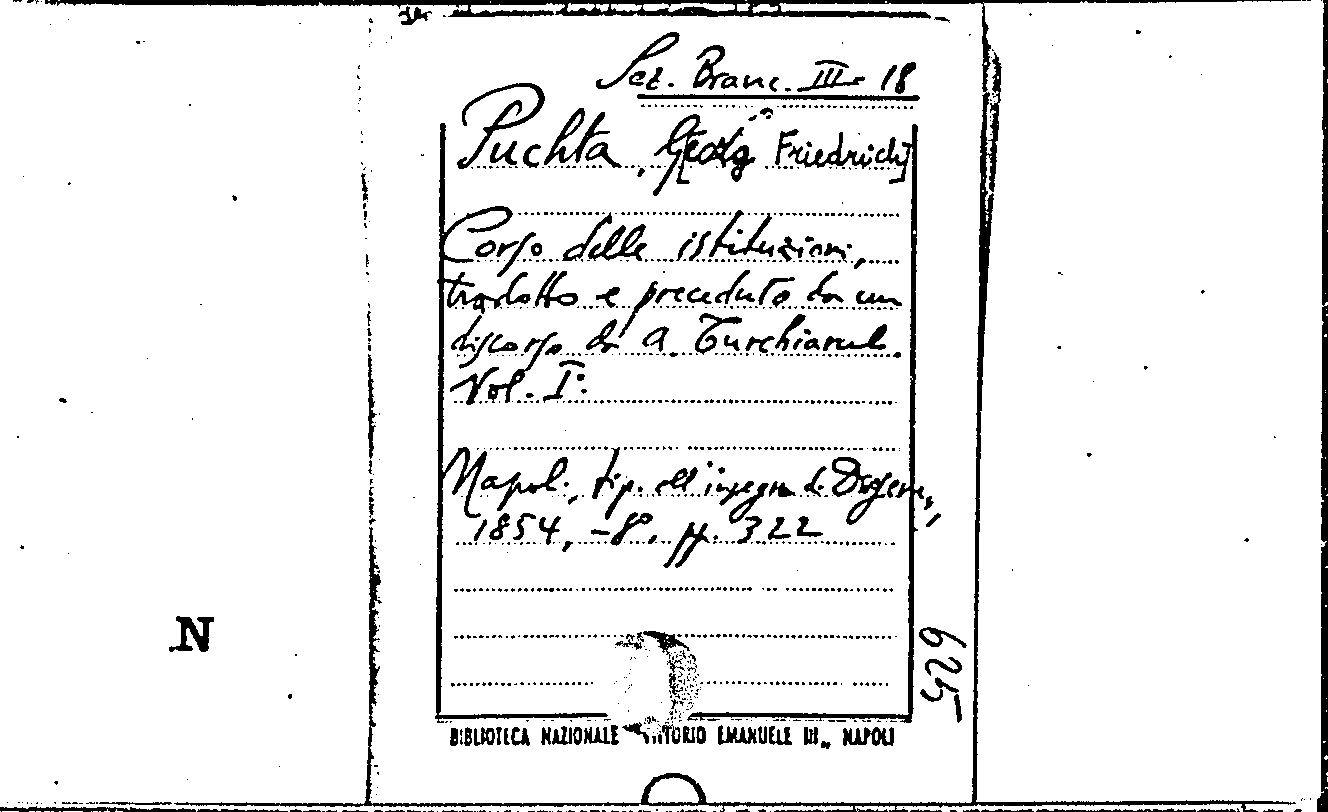 Sez. Branc. III 18
Puchta, G[eorg Friedrich]
Corso delle istituzioni,
tradotto e preceduto da un
discorso da A. Turchiarulo.
Vol. I°.
Napoli, tip. all'insegna di Diogene,
1854, -8°, pp. 322
N
629
BIBLIOTECA NAZIONALE "VITTORIO EMANUELE III„ NAPOLI